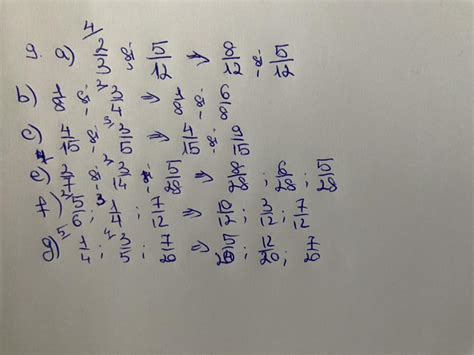 9. a) ⁴⁄ 2/3 și 5/12 => 8/12 și 5/12
b) 1/8 și ²⁾3/4 => 1/8 și 6/8
c) 4/15 și ³⁾3/5 => 4/15 și 9/15
e) ⁴⁾2/7 și ²⁾3/14 și 5/28 => 8/28; 6/28; 5/28
f) ²⁾5/6; ³⁾1/4; 7/12 => 10/12; 3/12; 7/12
g) ⁵⁾1/4; ⁴⁾3/5; 7/20 => 5/20; 12/20; 7/20